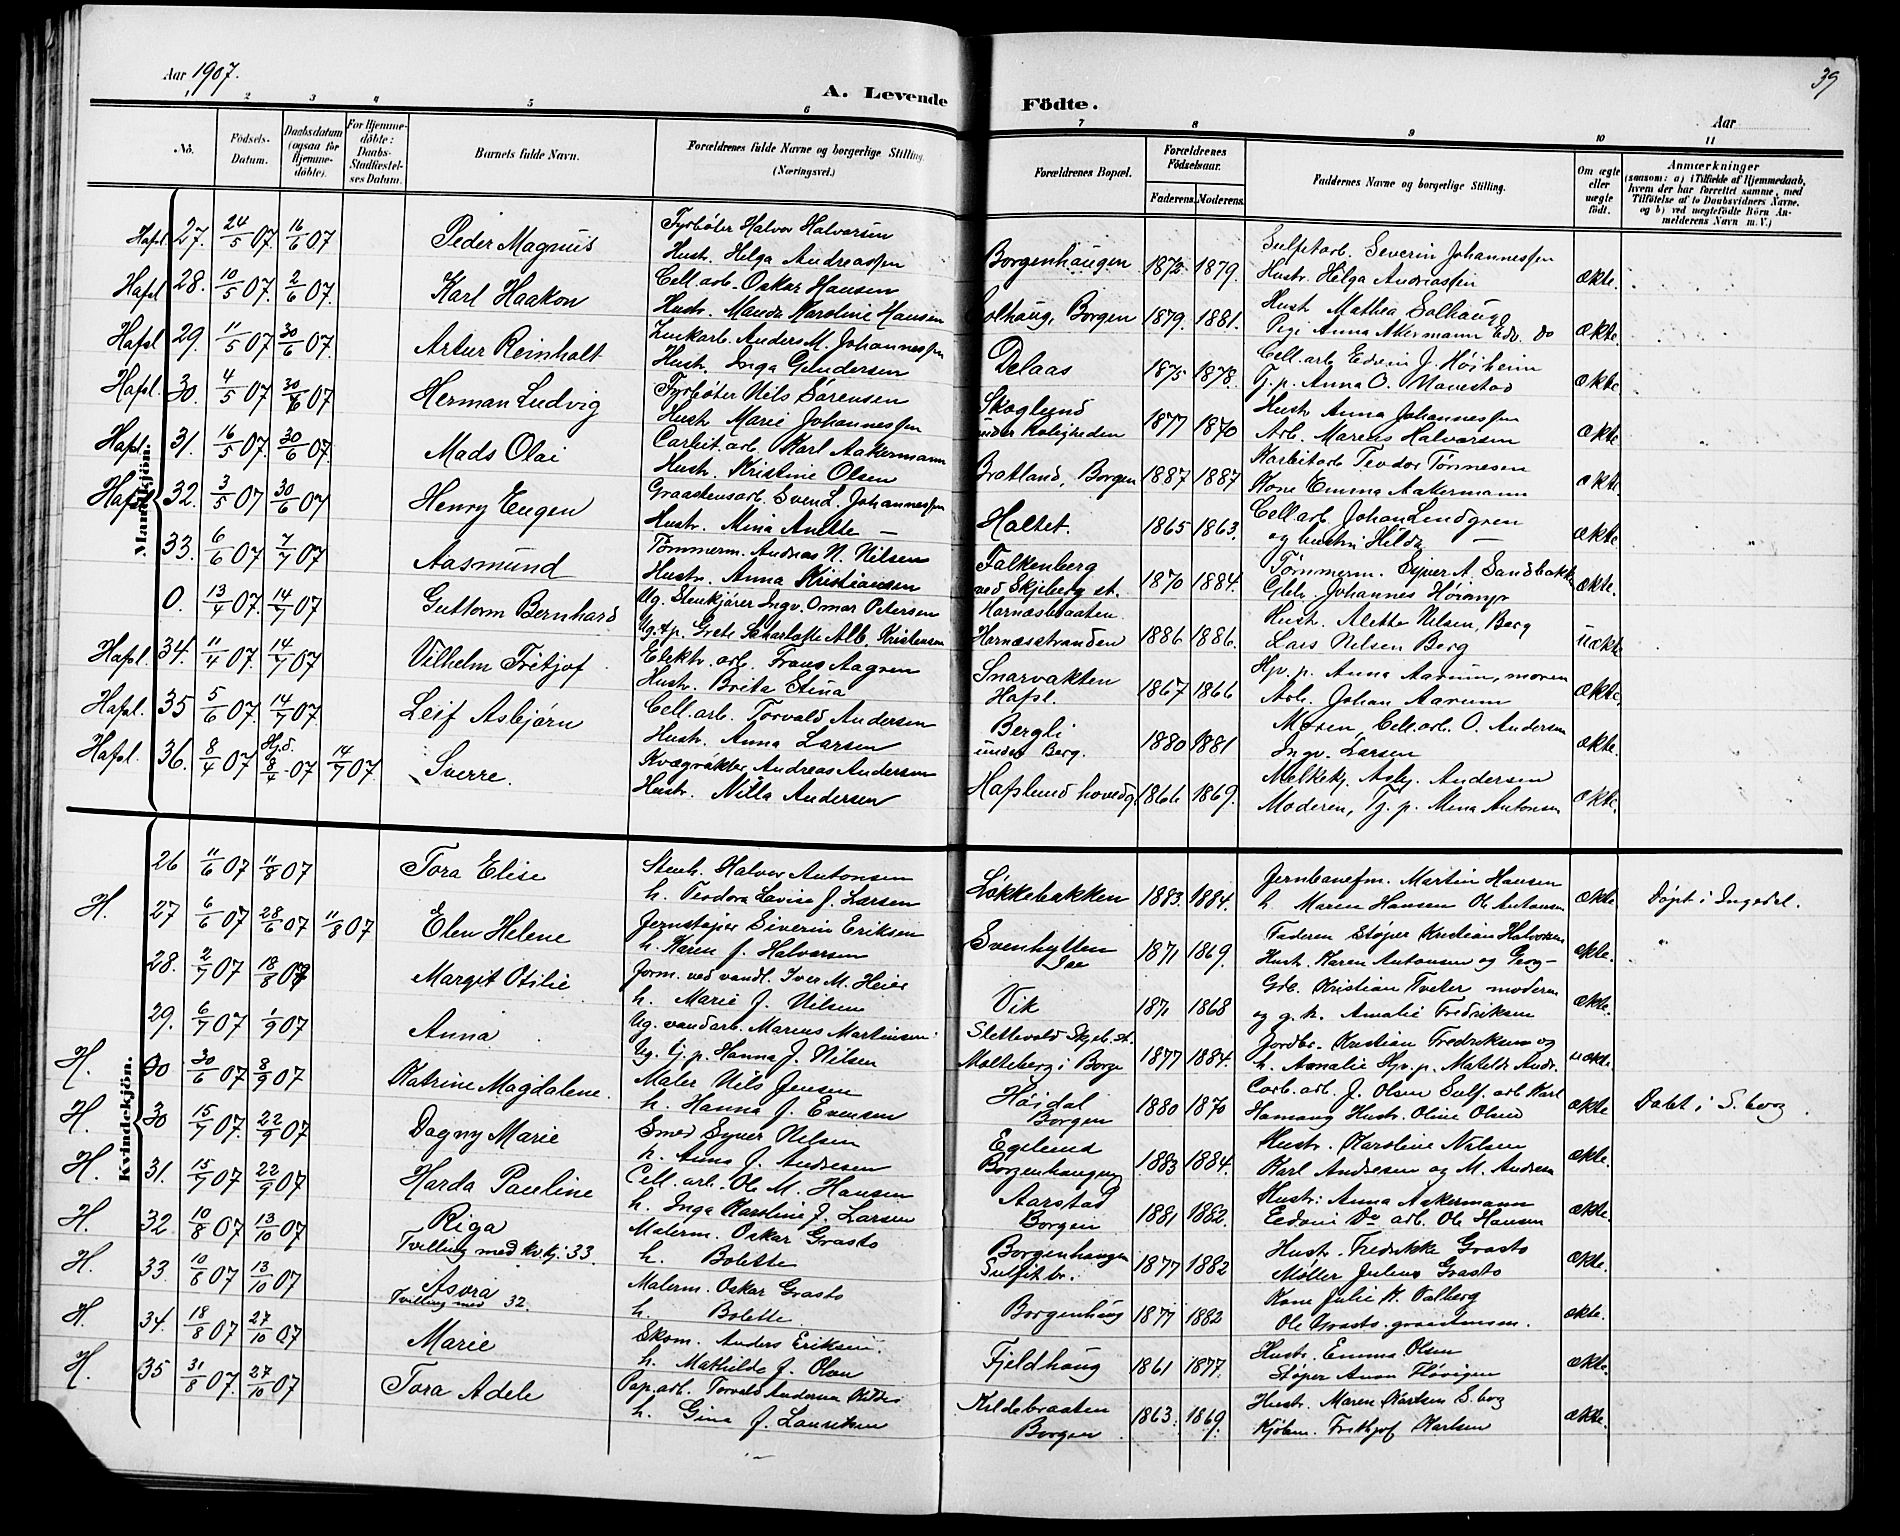 Aar 1907.
39
A. Levende Födte.
Aar
1 2 3 4 5 6 7 8 9 10 11
No.
Födsels-Datum.
Daabsdatum (ogsaa for Hjemme-döbte).
For Hjemme-döbte: Daabs-Stadfæstel-ses Datum.
Barnets fulde Navn.
Forældrenes fulde Navne og borgerlige Stilling. (Næringsvei.)
Forældrenes Bopæl.
Forældrenes Födselsaar.
Faderens. Moderens.
Faddernes Navne og borgerlige Stilling.
Om ægte eller uægte födt.
Anmærkninger
(saasom: a) i Tilfælde af Hjemmedaab, hvem der har forrettet samme, med Tilföielse af to Daabsvidners Navne, og b) ved uægtefödte Börn Anmelderens Navn m. V.)
Mandkjön.
Hafsl. 27. 24/5 07. 16/6 07 Peder Magnus Fyrböter Halvor Halvorsen Borgenhaugen 1872 1879. Sulfitarb. Severin Johannessen ækte.
Hustr. Helga Andreassen Hustr. Helga Andreassen
Hafsl 28. 10/5 07. 2/6 07. Karl Haakon Cell. arb. Oskar Hansen Solhaug, Borgen 1879. 1881. Hustr Mathea Solhaug ækte.
Hustr. Maude Karoline Hansen Pige Anna Akermann Edv. Do
Hafsl 29. 11/5 07 30/6 07. Artur Reinholt Zinkarb. Anders M. Johannessen Delaas 1875 1878. Cell. arb. Edvin J. Höiheim ækte
Hustr. Inga Gundersen Tj. p. Anna O. Navestad
Hafsl. 30. 4/5 07 30/6 07 Herman Ludvig Fyrböter Nils Sörensen Skoglund 1877 1870 Hustr Anna Johannessen ækte
Hustr Marie Johannessen under Roligheden Arb. Marius Halvorsen
Hafsl. 31. 16/5 07. 30/6 07. Mads Olai Carbit. arb. Karl Aakermann Bratland, Borgen 1887 1887 Karbitarb Teodor Tönnesen ækte.
Hustr. Kristine Olsen Kone Emma Aakermann
Hafsl 32. 3/5 07 30/6 07 Henry Eugen Graastensarb. Svend. Johannessen Holtet. 1865 1863. Cell. arb. Johan Lindgren ækte.
Hustr. Mina Anette — og hustru Hilda —
33. 6/6 07. 7/7 07 Aasmund Tömmerm. Andreas N. Nilsen Falkenberg 1870 1884. Tömmerm. Syver A. Sandbakken ækte.
Hustr. Anna Kristiansen ved Skjeberg st. Gbr. Johannes
0. 13/4 07. 14/7 07 Guttorm Bernhard Ug. Stenkjörer Ingv. Omar Petersen Hornæsbraaten 1886 1886. Hustr. Alette Nilsen, Berg uækte
Ug. tj. p. Grete Scharlotte Alb. Kristensen Hornæsstranden Lars Nilsen Berg
Hafsl. 34. 11/4 07. 14/7 07 Vilhelm Fritjof Elektr. arb. Frans Aagren Snarvakten 1867 1866 Hp. p. Anna Aarum, moren ækte.
Hustr. Brita Stina Hafsl. Arb. Johan Aarum
Hafsl. 35 5/6 07. 14/7 07 Leif Asbjörn Cell. arb. Torvald Andersen Bergli 1880 1881 Moren, Cell. arb. O. Andersen ækte.
Hustr. Anna Larsen under Berg. Ingv. Larsen
Hafsl. 36. 8/4 07 Hj.d. 8/4 07 14/7 07. Sverre. Kvægrökter Andreas Andersen Hafslund hovedg. 1866 1869. Melkekj. Asbj. Andersen ækte.
Hustr. Nilla Andersen Moderen, Tj. p. Mina Antonsen
Kvindekjön.
26 11/6 07 11/8 07 Tora Elise Stenh. Halvor Antonsen Lökkebakken 1883. 1884. Jernbanefm. Martin Hansen ækte Döpt i Ingedal.
h. Teodora Lovise f. Larsen h. Maren Hansen Ole Antonsen
H. 27 6/6 07 28/6 07 11/8 07 Elen Helene Jernstöper Siverin Eriksen Svenhytten 1871 1869. Faderen Stöper Kristian Halvorsen ækte. "
h. Karen f. Halvorsen Hustr. Karen Antonsen og Georg —
28. 2/7 07 18/8 07 Margit Otilie Form. ved vandl. Iver M. Heier Vik 1871 1868 Gdl. Kristian Tveter moderen ækte.
h. Marie f. Nilsen og g. h. Amalie Fredriksen
29. 6/7 07 1/9 07 Anna Ug. vandarb. Marius Martinsen Slettevold Skjeb. st. 1877 1884. Jordbr. Kristian Fredriksen og uækte.
Ug. tj. p. Hanna J. Nilsen Molteberg i Borge h. Amalie Hp. p. Matilde Andr.
H. 00 30/6 07 8/9 07 Katrine Magdalene. Maler Nils Jensen Höidal 1880 1870 Carb. arb. J. Olsen Sulf. arb Karl ækte Döbt i S.borg.
h. Hanna f. Evensen Borgen Hustr. Oline Olsen
H. 30 15/7 07. 22/9 07 Dagny Marie Smed Syver Nilsen Egelund 1883 1884. Hustr. Karoline Nilsen ækte.
h. Anna f. Andresen Borgenhaugen Karl Andresen og M. Andresen
H. 31. 15/7 07 22/9 07 Harda Pauline Cell. arb. Ole M. Hansen Aarstad 1881 1882. Hustr: Anna Aakermann ækte.
h. Inga Karoline f. Larsen Borgen Edvin Do arb. Ole Hansen
H. 32. 10/8 07 13/10 07 Riga Malerm. Oskar Grasto Borgenhaugen 1877 1882 Hustr. Fredrikke Grasto ækte.
Tvilling med kv.kj. 33. h. Bolette Sulfitbr. Möller Julius Grasto
H. 33. 10/8 07 13/10 07 Asvra Malerm. Oskar Grasto Borgenhaug 1877 1882 Kone Julie K. Valberg ækte.
Tvilling med 32. h. Bolette. Ole Grasto
H. 34. 18/8 07 27/10 07 Marie Skom. Anders Eriksen Fjeldhaug 1861 1877. Hustr. Emma Olsen ækte.
h. Mathilde f. Olsen Stöper Anon
H. 35 31/8 07. 27/10 07 Tora Adele Pap. arb. Torvald Andersen Kildebraaten 1863. 1869. Hustr. Maren Karlsen S.borg ækte.
h. Gina f. Lauritsen Borgen Kjöbm. Frithjof Karlsen